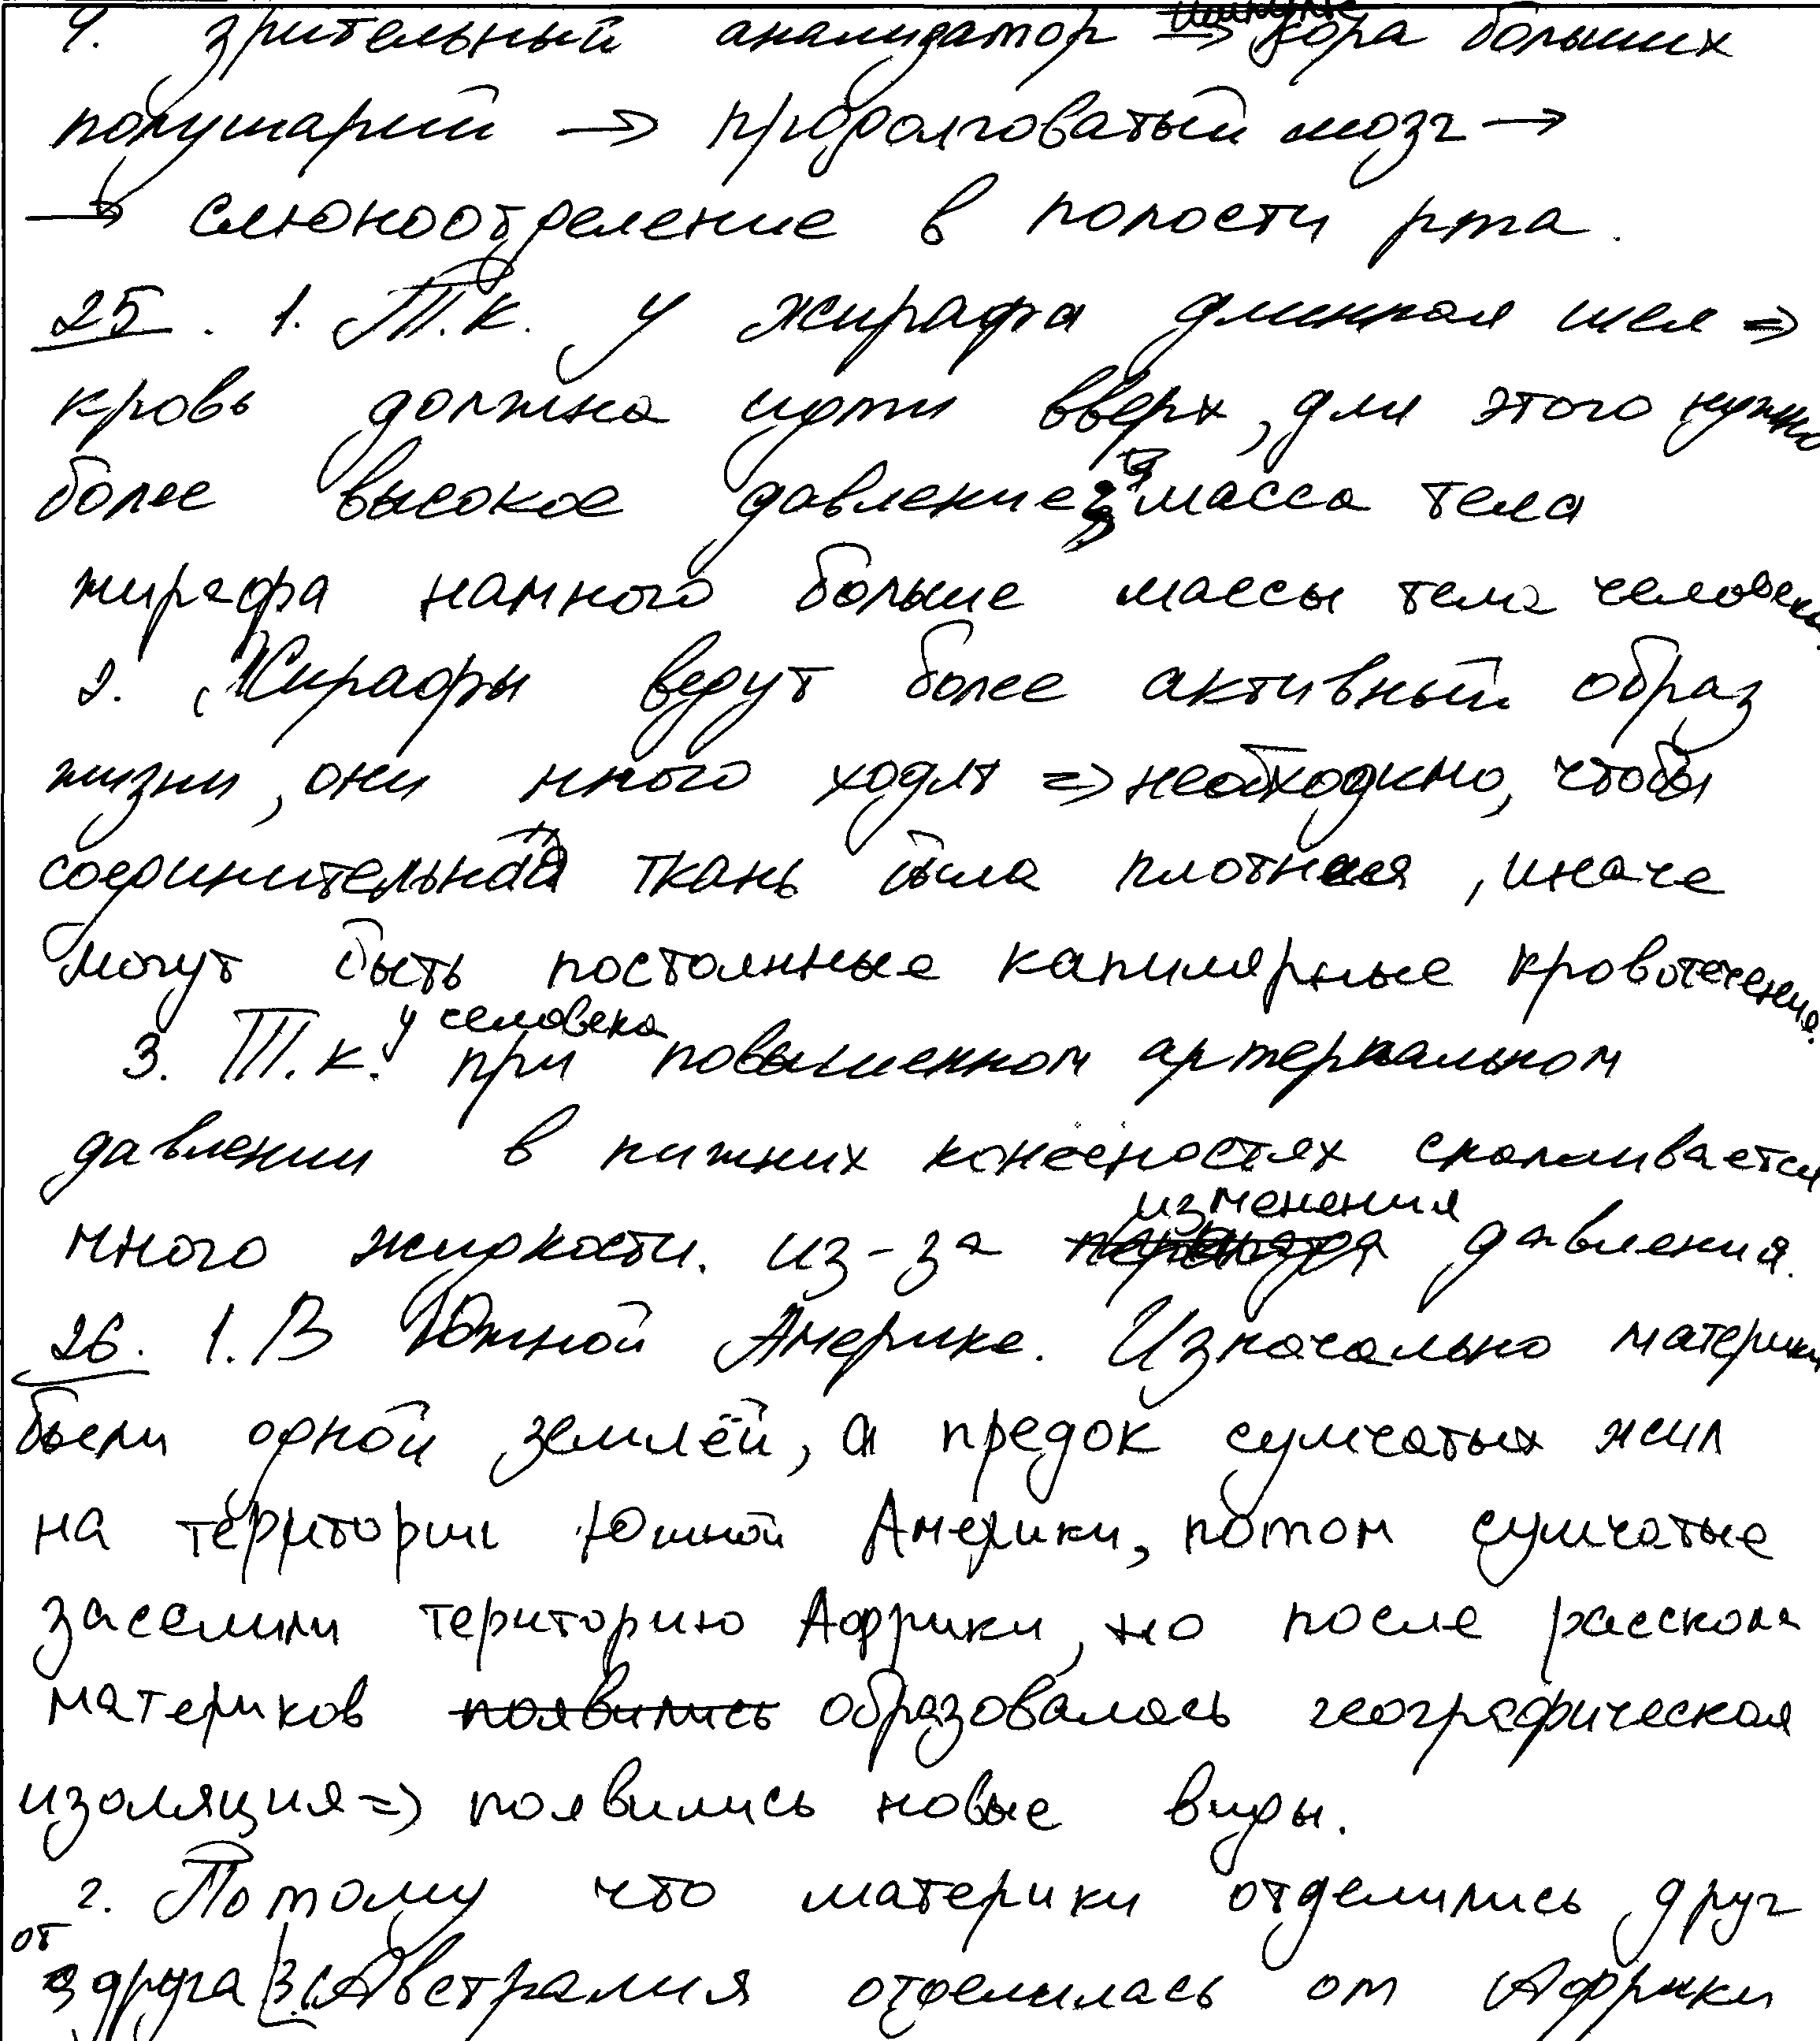 4. зрительный анализатор → кора больших
полушарий → продолговатый мозг →
→ слюноотделение в полости рта.
25. 1. Т.к. у жирафа длинная шея ⇒
кровь должна идти вверх, для этого нужно
более высокое давление, масса тела
жирафа намного больше массы тела человека.
2. Жирафы ведут более активный образ
жизни, они много ходят ⇒ необходимо, чтобы
соединительная ткань была плотная, иначе
могут быть постоянные капилярные кровотечения.
3. Т.к. у человека при повышенном артериальном
давлении в нижних конечностях скапливается
много жидкости. из-за изменения давления.
26. 1. В Южной Америке. Изначально материки
были одной землёй, а предок сумчатых жил
на територии Южной Америки, потом сумчатые
заселили територию Африки, но после раскола
материков появились образовалась географическая
изоляция ⇒ появились новые виды.
2. Потому что материки отделились друг
от друга 3. Австралия отделилась от Африки